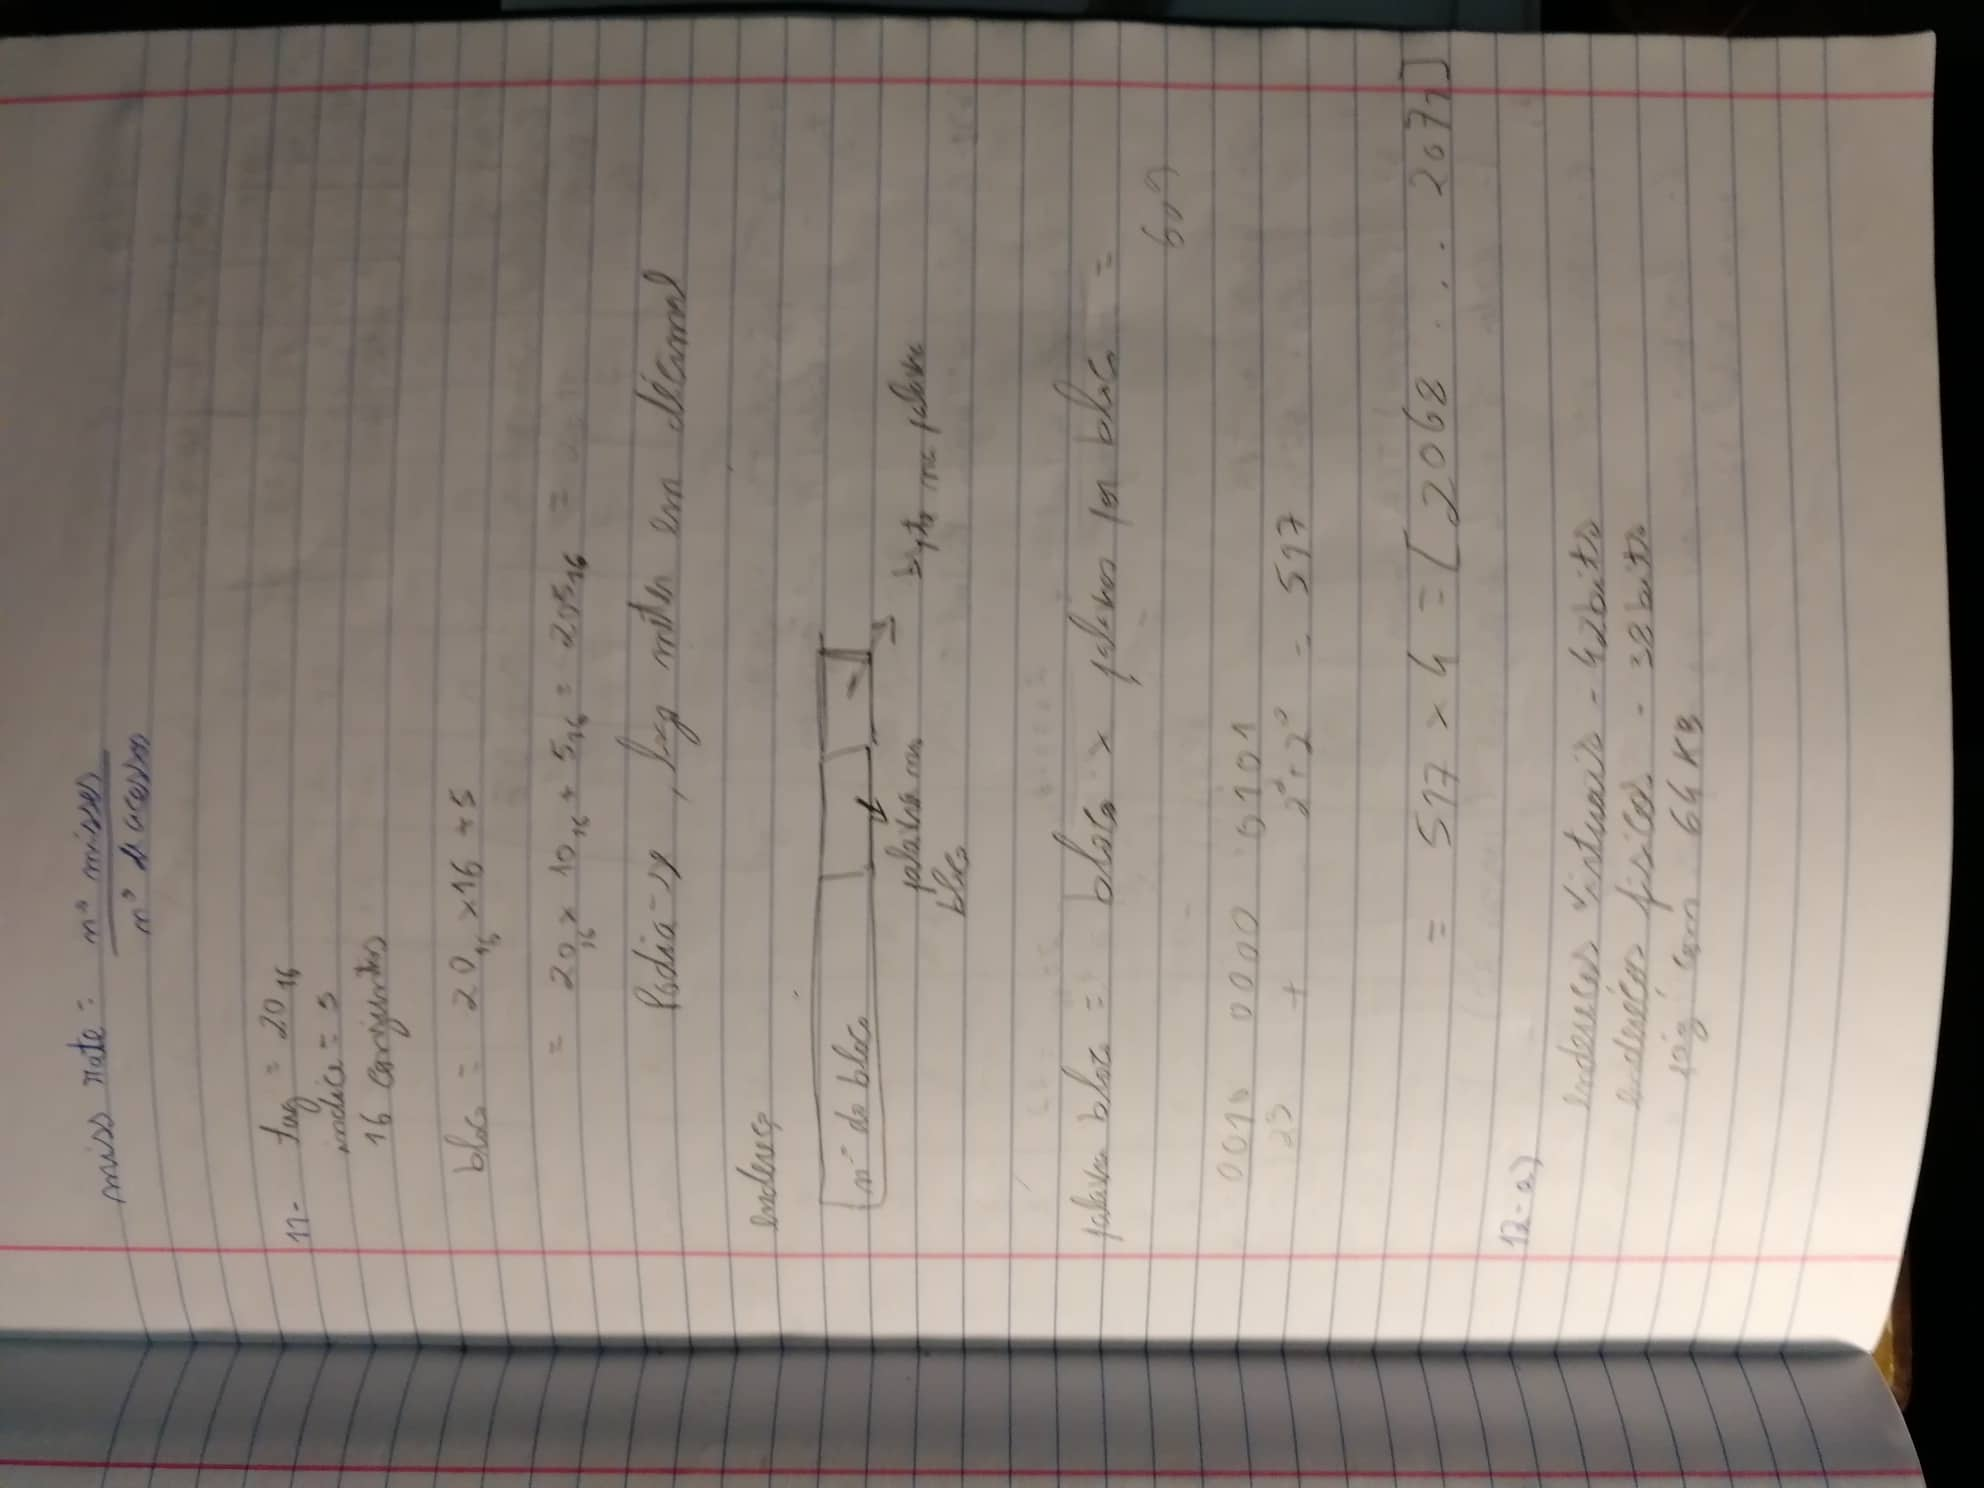 miss rate = nº misses
nº de acessos
11- tag = 20₁₆
indice = 5
16 conjuntos
bloco = 20₁₆ x 16 + 5
= 20₁₆ x 10₁₆ + 5₁₆ = 205₁₆ =
Podia-se, logo meter em décimal
endereço
nº do bloco
palavra no bloco
byte na palavra
palavra bloco = bloco x palavras por bloco =
0010 0000 0101
2⁹ + 2² + 2⁰ = 517
= 517 x 4 = [2068 . . . 2071]
12-a)
endereços virtuais - 42 bits
endereços físicos - 38 bits
pág com 64 KB